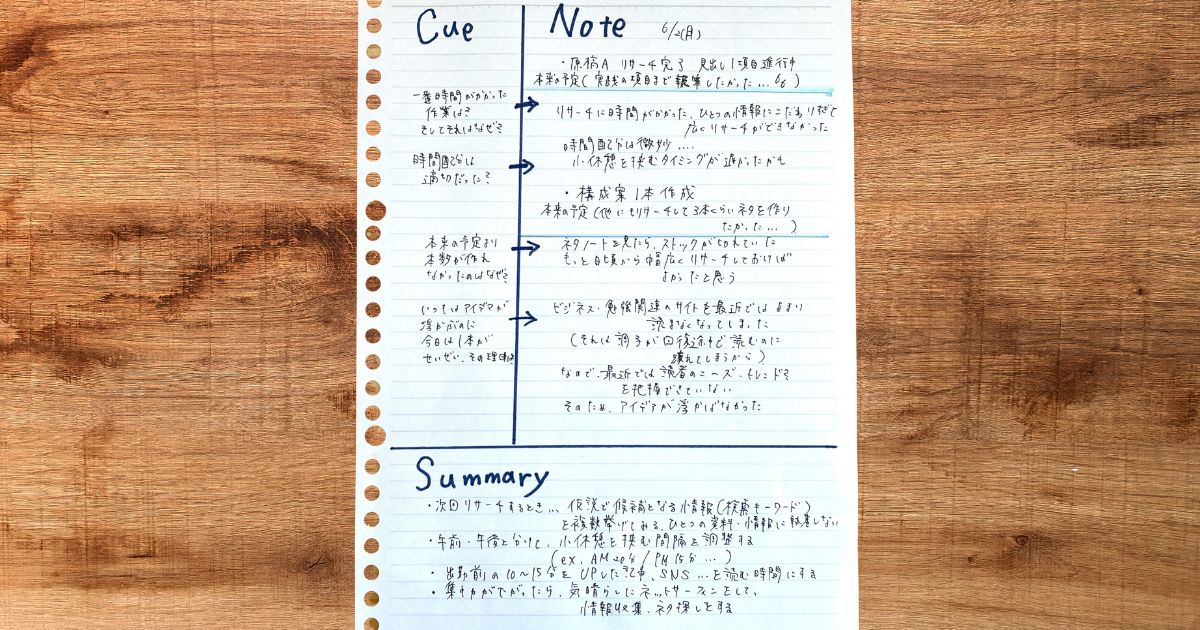 Cue
Note 6/2(月)
・原稿A リサーチ完了 見出し1項目進行中
本来の予定(実践の項目まで執筆したかった…
一番時間がかかった
作業は?
そしてそれはなぜ?
リサーチに時間がかかった、ひとつの情報にこだわりすぎて
広くリサーチができなかった
時間配分は
適切だった?
時間配分は微妙….
小休憩を挟むタイミングが遅かったかも
・構成案1本作成
本来の予定(他にもリサーチして3本くらいネタを作り
たかった…)
本来の予定より
本数が作れ
なかったのはなぜ?
ネタノートを見たら、ストックが切れていた
もっと日頃から幅広くリサーチしておけば
よかったと思う
いつもはアイデアが
浮かぶのに
今日は1本が
せいぜい、その理由は
ビジネス・勉強関連のサイトを最近ではあまり
読まなくなってしまった
(それは調子が 読むのに
疲れてしまうから)
なので、最近では読者のニーズ、トレンドを
を把握できていない
そのため、アイデアが浮かばなかった
Summary
・次回リサーチするとき… 仮説で候補となる情報(検索キーワード)
を複数挙げてみる、ひとつの資料・情報に執着しない
・午前・午後と分けて、小休憩を挟む間隔を調整する
(ex, AM20分/PM15分…)
・出勤前の10〜15分を UPした記事、SNS…を読む時間にする
・集中力が下がったら、気晴らしにネットサーフィンをして、
情報収集、ネタ探しをする